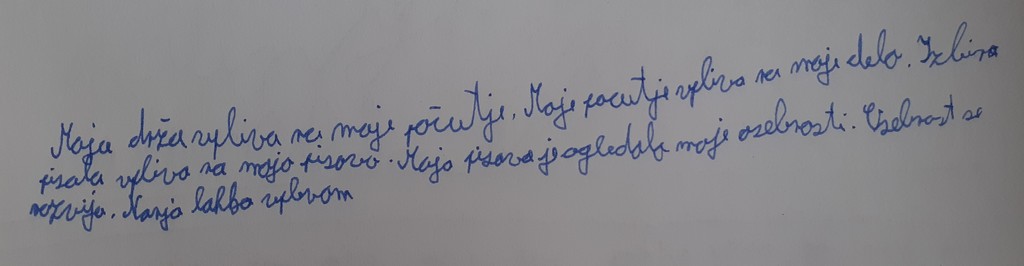 Moja drža vpliva na moje počutje. Moje pocutje vpliva na moje delo. Izbira
pisala vpliva na mojo pisavo. Moja pisava je ogledalo moje osebnosti. Osebnost se
razvija. Nanjo lahko vplivam